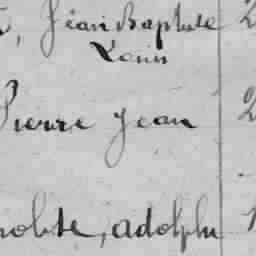 Jean Baptiste 2
Louis
Pierre Jean 2
adolphe